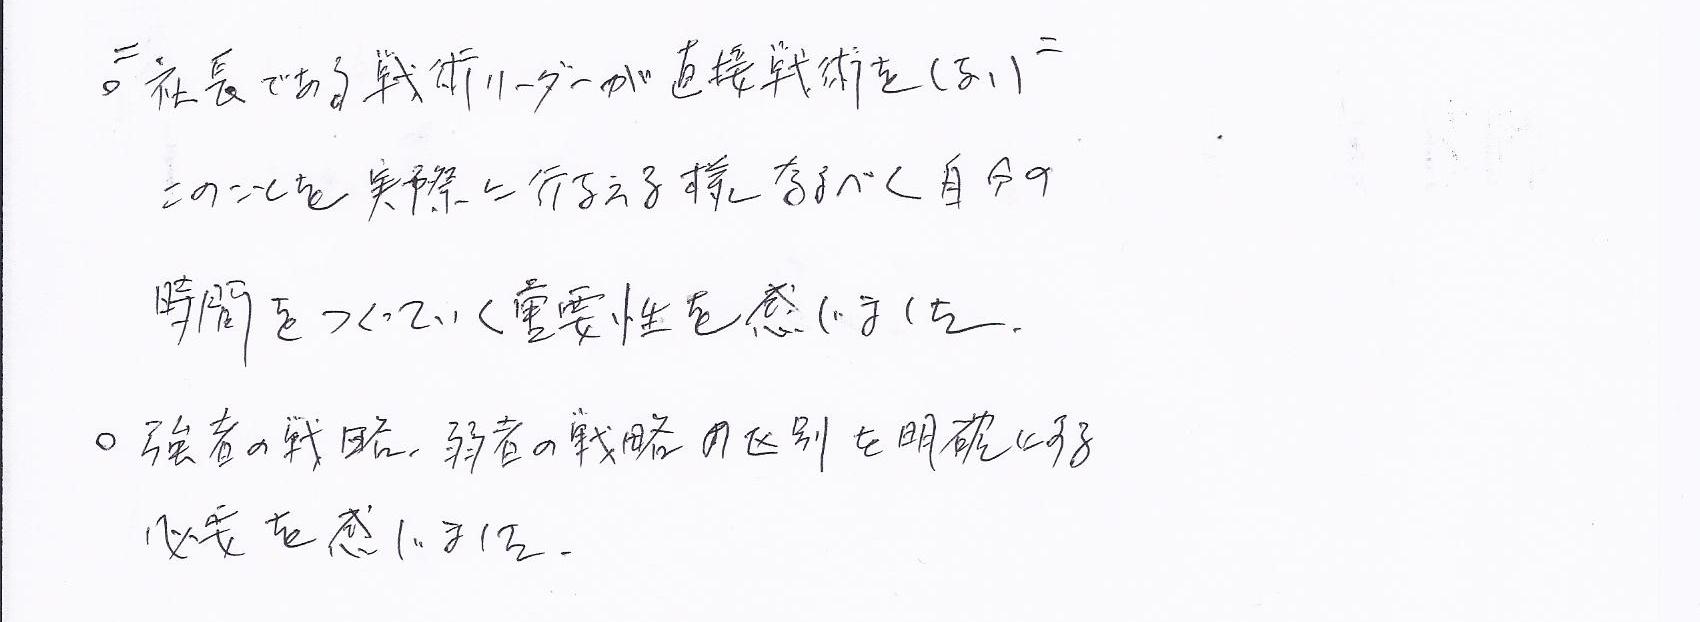 。"社長である戦術リーダーが直接戦術をしない"
このことを実際に行なえる様になるべく自分の
時間をつくっていく重要性を感じました.
○ 強者の戦略、弱者の戦略の区別を明確にする
必要を感じました.